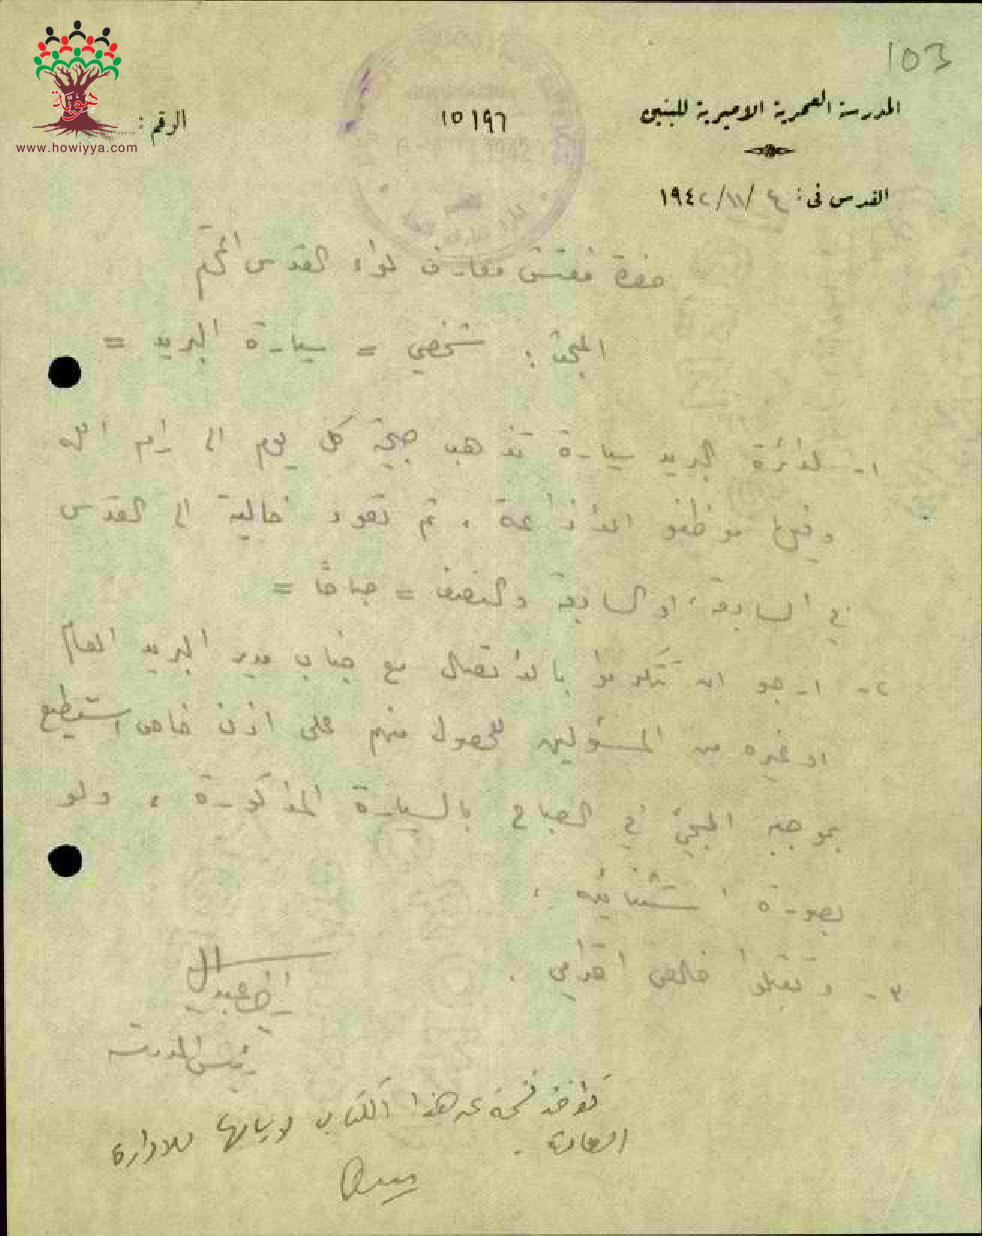 103
المدرسة العمرية الاميرية للبنين
القدس في: ٤ /١١/ ١٩٤٢
١٥١٩٦
الرقم:
هوية
www.howiyya.com
1942
حضرة مفتش معارف لواء القدس المحترم
المبحث : شخصي = سيارة البريد =
١- لدائرة البريد سيارة تذهب صبيحة كل يوم الى رام الله
وفيها موظفو الاذاعة ، ثم تعود خالية الى القدس
في السابعة ، او السابعة والنصف = صباحًا =
٢- ارجو ان تتكرموا بالاتصال مع جناب مدير البريد العام
او غيره من المسئولين للحصول منهم على اذن خاص استطيع
بموجبه المجئ في الصباح بالسيارة المذكورة ، ولو
بصورة استثنائية .
٣- وتقبلوا خالص احترامي .
رئيس المدرسة
تؤخذ نسخة عن هذا الكتاب لارسالها للادارة
العامة .